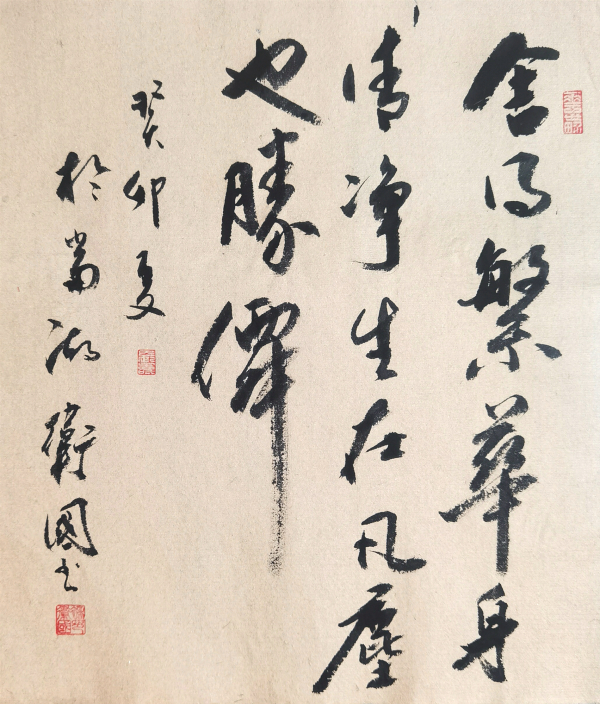 舍得繁華身
清净生在凡塵
也勝僊
癸卯夏
於當湖衛國书